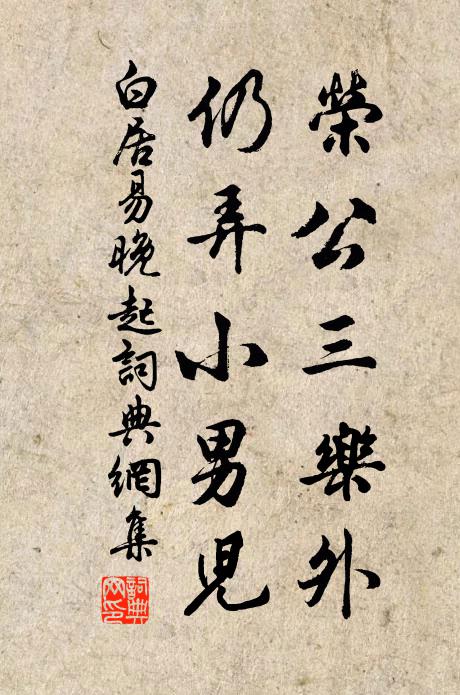 榮公三樂外
仍弄小男兒
白居易晚起詞典網集
詞典網印